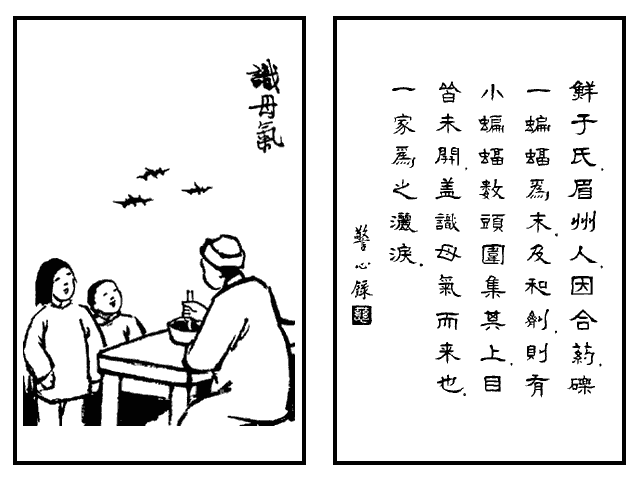 識母氣
鮮于氏.眉州人.因合葯.碟
一蝙蝠爲末.及和劑.則有
小蝙蝠數頭圍集其上.目
皆未開.盖識母氣而来也.
一家爲之灑淚.
警心録